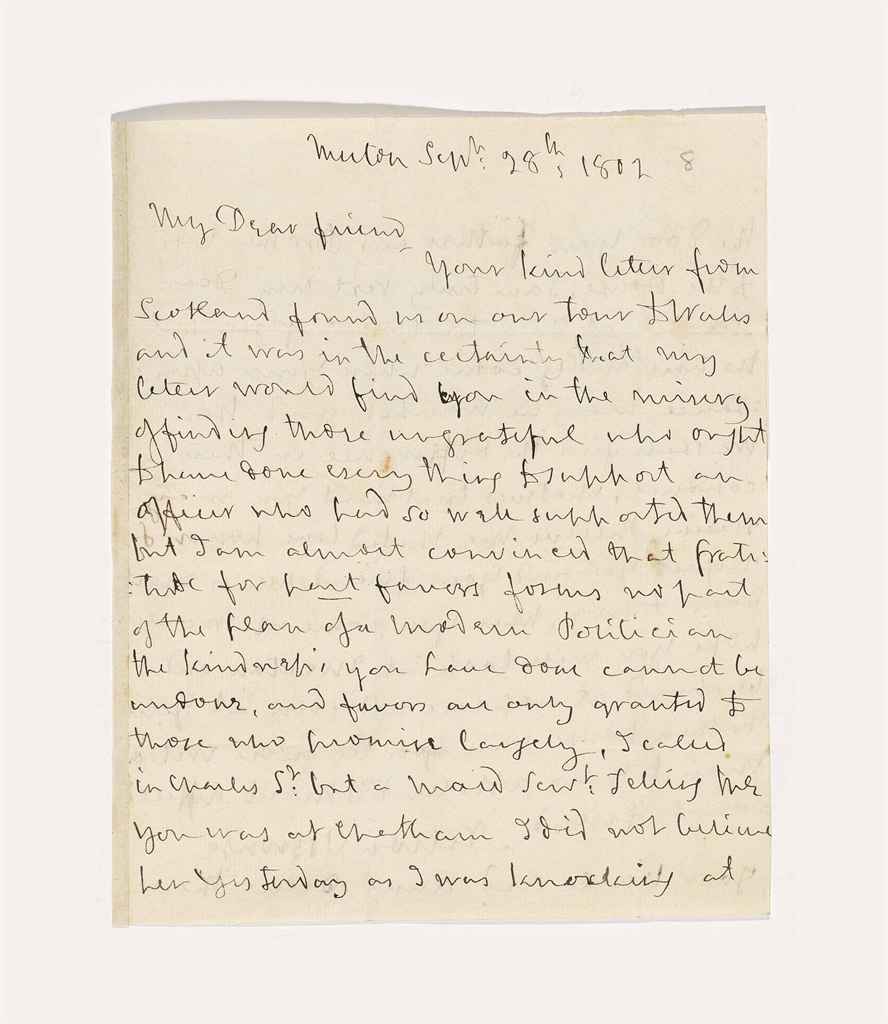 Merton Sepr: 28th, 1802 8
My Dear friend
Your kind letter from
Scotland found us on our tour to Wales
and it was in the certainty that my
letter would find you in the misery
of finding those ungrateful who ought
to have done every thing to support an
officer who had so well supported them
but I am almost convinced that grati:
:tude for past favors forms no part
of the plan of a modern Politician
the kindness's you have done cannot be
undone, and favors are only granted to
those who promise largely, I called
in Charles St: but a maid Servt: telling me
you was at Chatham I did not believe
her yesterday as I was knocking at